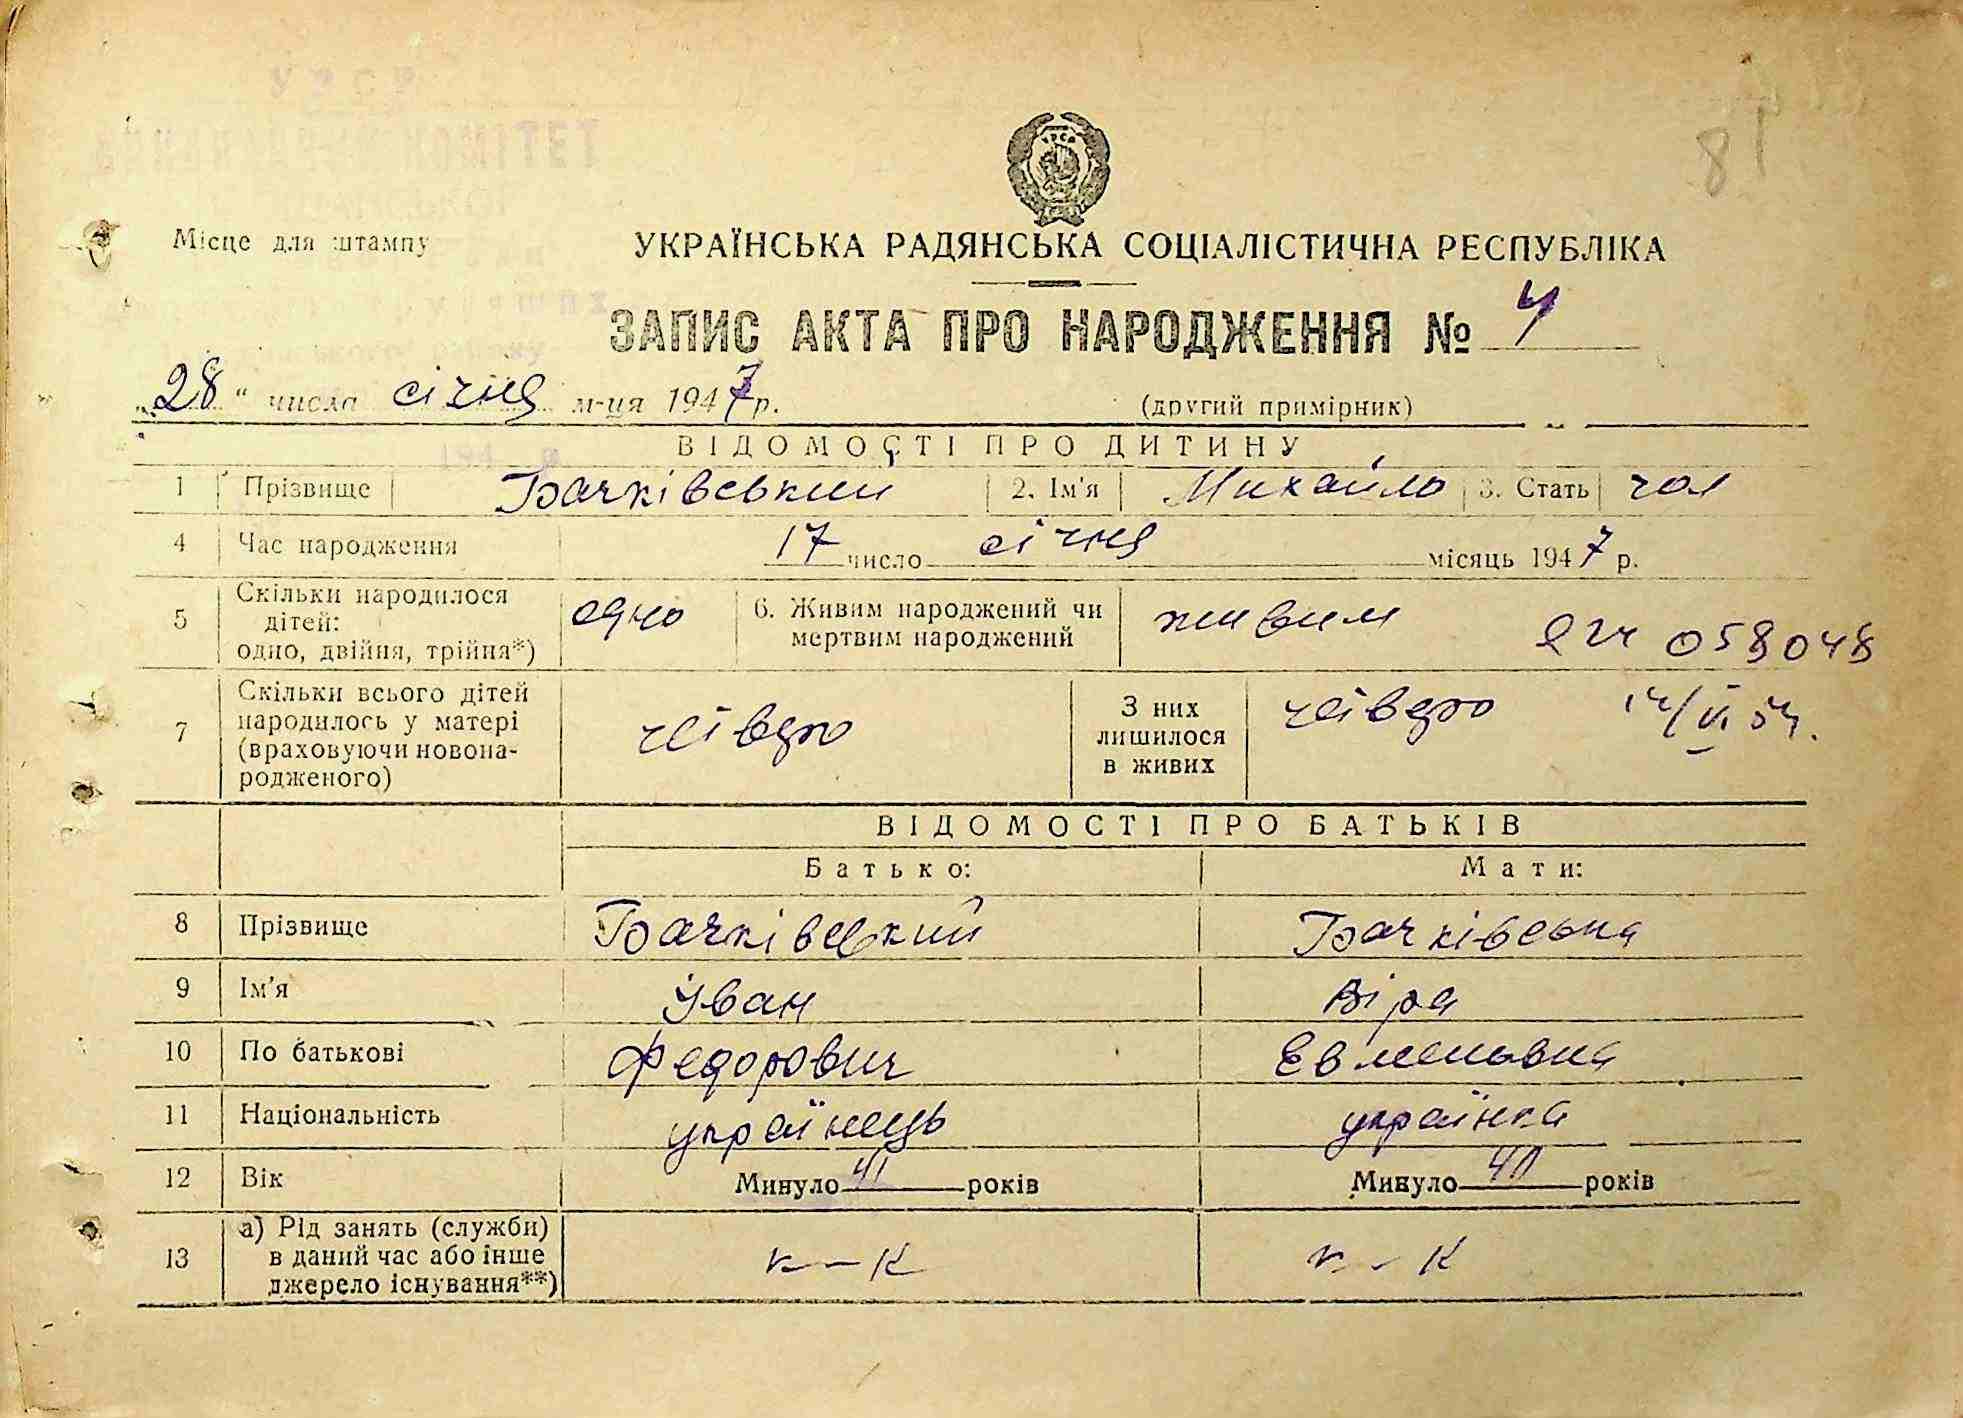 81
Місце для штампу
УРСР
УКРАЇНСЬКА РАДЯНСЬКА СОЦІАЛІСТИЧНА РЕСПУБЛІКА
ЗАПИС АКТА ПРО НАРОДЖЕННЯ № 4
„28“ числа січня м-ця 1947 р.
(другий примірник)
ВІДОМОСТІ ПРО ДИТИНУ
1 Прізвище Бачківський 2. Ім'я Михайло 3. Стать чол
4 Час народження 17 число січня місяць 1947 р.
5 Скільки народилося дітей: одно, двійня, трійня*) одно 6. Живим народжений чи мертвим народжений живим
058048
7 Скільки всього дітей народилось у матері (враховуючи новонародженого) четверо З них лишилося в живих четверо
14/VI 54.
ВІДОМОСТІ ПРО БАТЬКІВ
Батько: Мати:
8 Прізвище Бачківський Бачківська
9 Ім'я Іван Віра
10 По батькові Федорович Евменовна
11 Національність українець українка
12 Вік Минуло 41 років Минуло 40 років
13 а) Рід занять (служби) в даний час або інше джерело існування**) к-к к-к